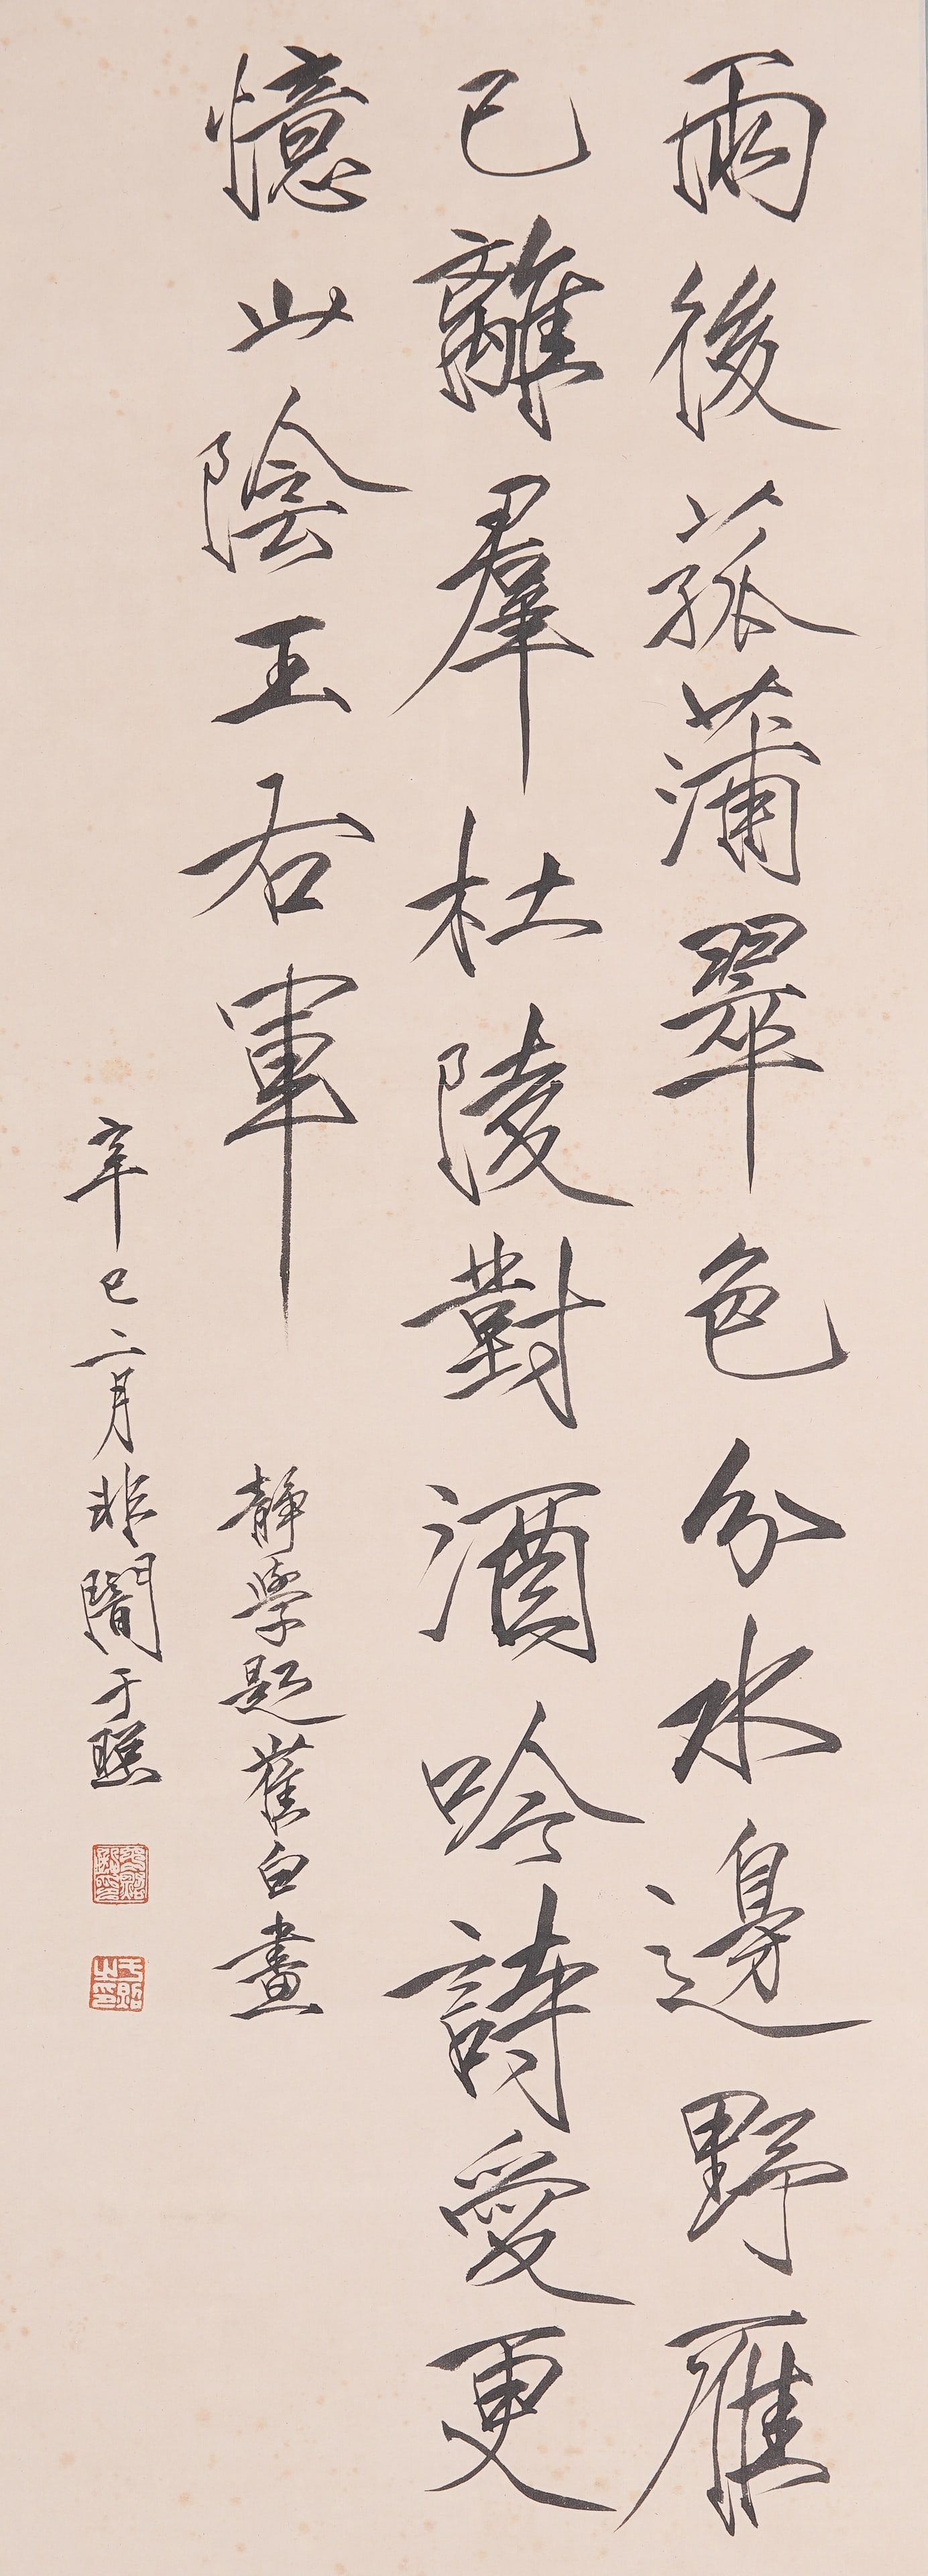 雨後菰蒲翠色分水邊野雁
已離羣杜陵對酒吟詩愛更
憶山陰王右軍
靜學題崔白畫
辛巳二月非闇于照